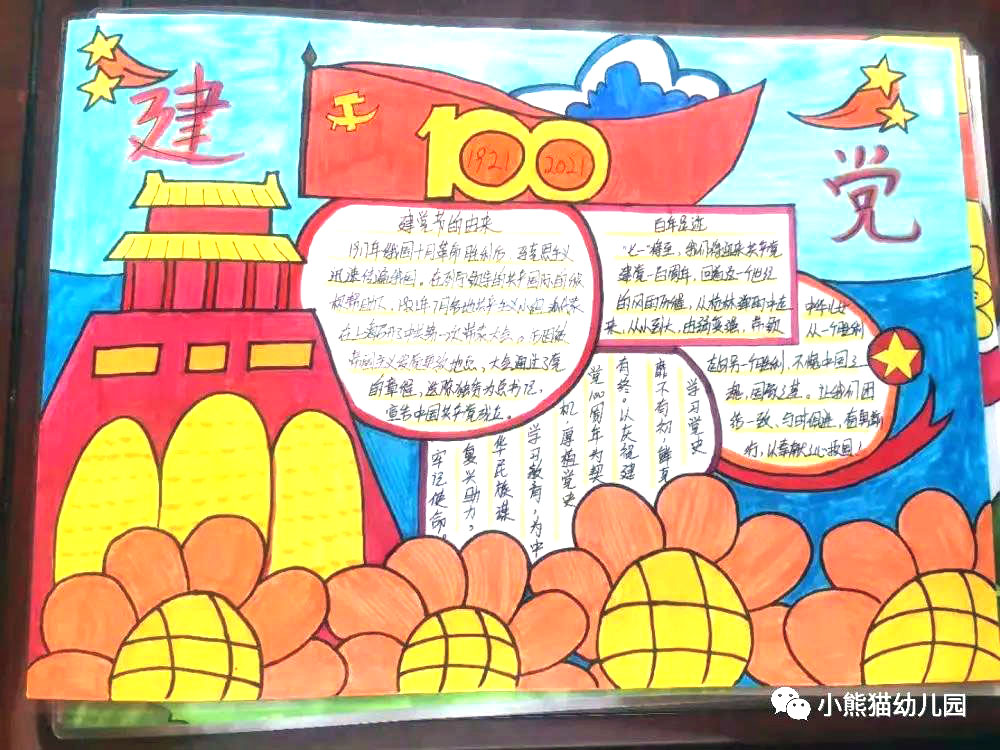 建
党
100
1921
2021
建党节的由来
1917年俄国十月革命胜利后，马克思主义
迅速传遍中国。在列宁领导的共产国际的积
极帮助下，1921年7月各地共产主义小组
在上海召开了中共第一次代表大会。
大会通过了党
的章程，选陈独秀为总书记，
宣告中国共产党成立。
百年足迹
"七一"将至，我们将迎来共产党
建党一百周年，回首这一个世纪
的风雨历程，从枪林弹雨中走
来，从小到大，由弱变强，
中华儿女
从一个胜利
走向另一个胜利，不愧中国之
让我们团
结一致、与时俱进，
学习党史
靡不有初，鲜克
有终。以庆祝建
党100周年为契
机，厚植党史
学习教育，为中
华民族谋
复兴助力。
牢记使命。
小熊猫幼儿园